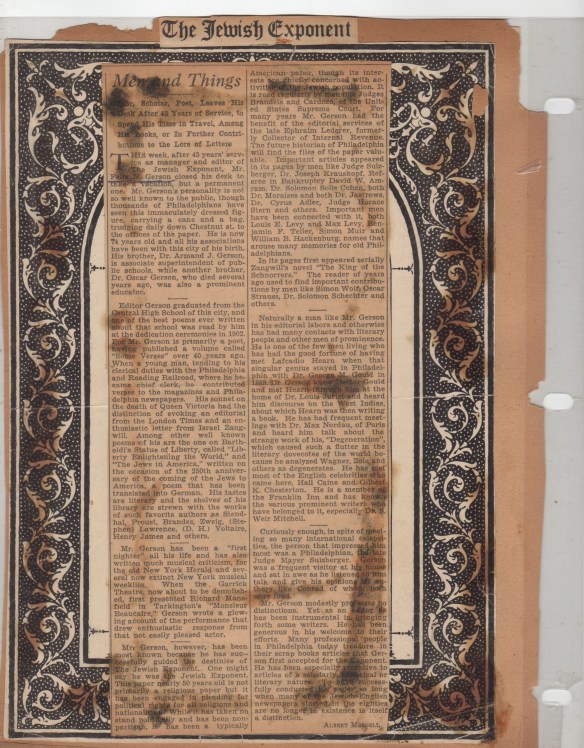 The Jewish Exponent
Men and Things
Scholar, Poet, Leaves His
Desk After 43 Years of Service, to
Spend His Time in Travel, Among
His Books, or In Further Contri-
butions to the Lore of Letters
This week, after 43 years' serv-
ice as manager and editor of
The Jewish Exponent, Mr.
Gerson closed his desk to
take a vacation, but a permanent
one. Mr. Gerson's personality is not
so well known to the public, though
thousands of Philadelphians have
seen this immaculately dressed fig-
ure, carrying a cane and a bag,
trudging daily down Chestnut st. to
the offices of the paper. He is now
74 years old and all his associations
have been with this city of his birth.
His brother, Dr. Armand J. Gerson,
is associate superintendent of pub-
lic schools, while another brother,
Dr. Oscar Gerson, who died several
years ago, was also a prominent
educator.
Editor Gerson graduated from the
Central High School of this city, and
one of the best poems ever written
about that school was read by him
at the dedication ceremonies in 1902.
For Mr. Gerson is primarily a poet,
having published a volume called
"Some Verses" over 40 years ago.
When a young man, tending to his
clerical duties with the Philadelphia
and Reading Railroad, where he be-
came chief clerk, he contributed
verses to the magazines and Phila-
delphia newspapers. His sonnet on
the death of Queen Victoria had the
distinction of evoking an editorial
from the London Times and an en-
thusiastic letter from Israel Zang-
will. Among other well known
poems of his are the one on Barth-
oldi's Statue of Liberty, called "Lib-
erty Enlightening the World," and
"The Jews in America," written on
the occasion of the 250th anniver-
sary of the coming of the Jews to
America, a poem that has been
translated into German. His tastes
are literary and the shelves of his
library are strewn with the works
of such favorite authors as Stend-
hal, Proust, Brandes, Zweig, (Ste-
phen) Lawrence, (D. H.) Voltaire,
Henry James and others.
Mr. Gerson has been a "first
nighter" all his life and has also
written much musical criticism, for
the old New York Herald and sev-
eral now extinct New York musical
weeklies. When the Garrick
Theatre, now about to be demolish-
ed, first presented Richard Mans-
field in Tarkington's "Monsieur
Beaucaire," Gerson wrote a glow-
ing account of the performance that
drew enthusiastic response from
that not easily pleased actor.
Mr. Gerson, however, has been
most known because he has suc-
cessfully guided the destinies of
The Jewish Exponent. One might
say he was The Jewish Exponent.
This paper nearly 50 years old is not
primarily a religious paper but it
has been engaged in pleading for
political rights for all religions and
nationalities. While it has taken no
stand politically and has been non-
partisan, it has been a typically
American paper, though its inter-
ests are chiefly concerned with ac-
tivities of the Jewish population. It
is read regularly by men like Judges
Brandeis and Cardozo, of the Unit-
ed States Supreme Court. For
many years Mr. Gerson had the
benefit of the editorial services of
the late Ephraim Lederer, former-
ly Collector of Internal Revenue.
The future historian of Philadelphia
will find the files of the paper valu-
able. Important articles appeared
in its pages by men like Judge Sulz-
berger, Dr. Joseph Krauskopf, Ref-
eree in Bankruptcy David W. Am-
ram, Dr. Solomon Solis Cohen, both
Dr. Moraises and both Dr. Jastrows,
Dr. Cyrus Adler, Judge Horace
Stern and others. Important men
have been connected with it, both
Louis E. Levy and Max Levy, Ben-
jamin F. Teller, Simon Muir and
William B. Hackenburg, names that
arouse many memories for old Phil-
adelphians.
In its pages first appeared serially
Zangwill's novel "The King of the
Schnorrers." The reader of years
ago used to find important contribu-
tions by men like Simon Wolf, Oscar
Straus, Dr. Solomon Schechter and
others.
Naturally a man like Mr. Gerson
in his editorial labors and otherwise
has had many contacts with literary
people and other men of prominence.
He is one of the few men living who
has had the good fortune of having
met Lafcadio Hearn when that
singular genius stayed in Philadel-
phia with Dr. George M. Gould in
Gerson Gould
and met Hearn at the
home of Dr. Louis and heard
him discourse on the West Indies,
about which Hearn was then writing
a book. He has had frequent meet-
ings with Dr. Max Nordau, of Paris
and heard him talk about the
strange work of his, "Degeneration",
which caused such a flutter in the
literary dovecotes of the world be-
cause he analyzed Wagner, Zola and
others as degenerates. He has
most of the English celebrities
came here, Hall Caine and Gilbert
K. Chesterton. He is a member of
the Franklin Inn and has known
the various prominent writers who
have belonged to it, especially Dr. S.
Weir Mitchell.
Curiously enough, in spite of meet-
ing so many international celebri-
ties, the person that impressed him
most was a Philadelphian,
Judge Mayer Sulzberger.
was a frequent visitor at his house
and sat in awe as he listened to him
talk and give his opinions
Mr. Gerson modestly
distinctions. Yet as an editor he
has been instrumental in bringing
forth some writers. He has been
generous in his welcome to their
efforts. Many professional people
in Philadelphia today treasure in
their scrap books articles that Ger-
son first accepted for the Exponent.
He has been especially
articles of a scholarly and
literary nature.
fully conducted
when many
newspapers
are no longer in existence is itself
a distinction.
ALBERT MORDELL